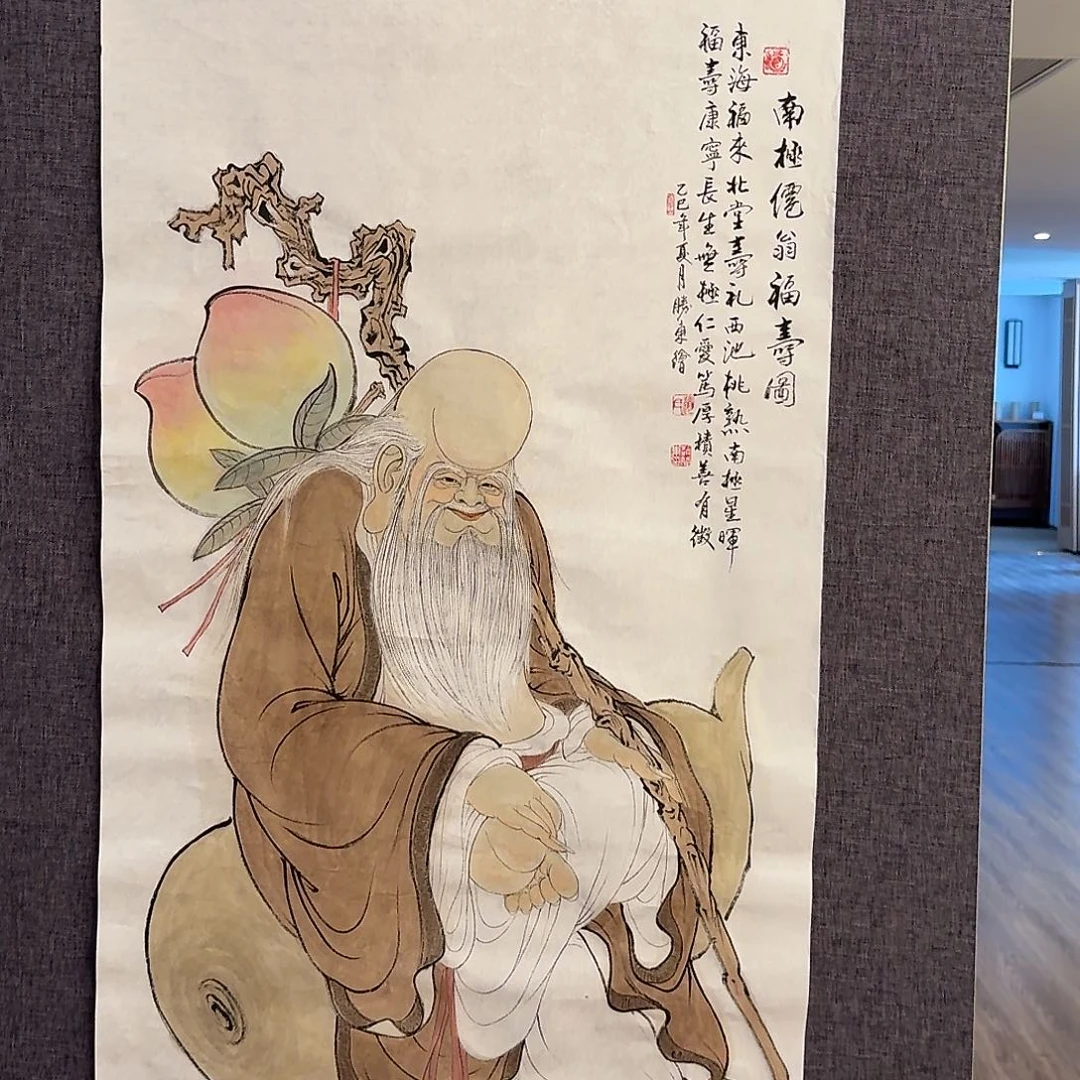 南極僊翁福壽圖
東海福來北堂壽礼西池桃熟南極星暉
福壽康寧長生無極仁愛篤厚積善有徵
乙巳年夏月勝東繪